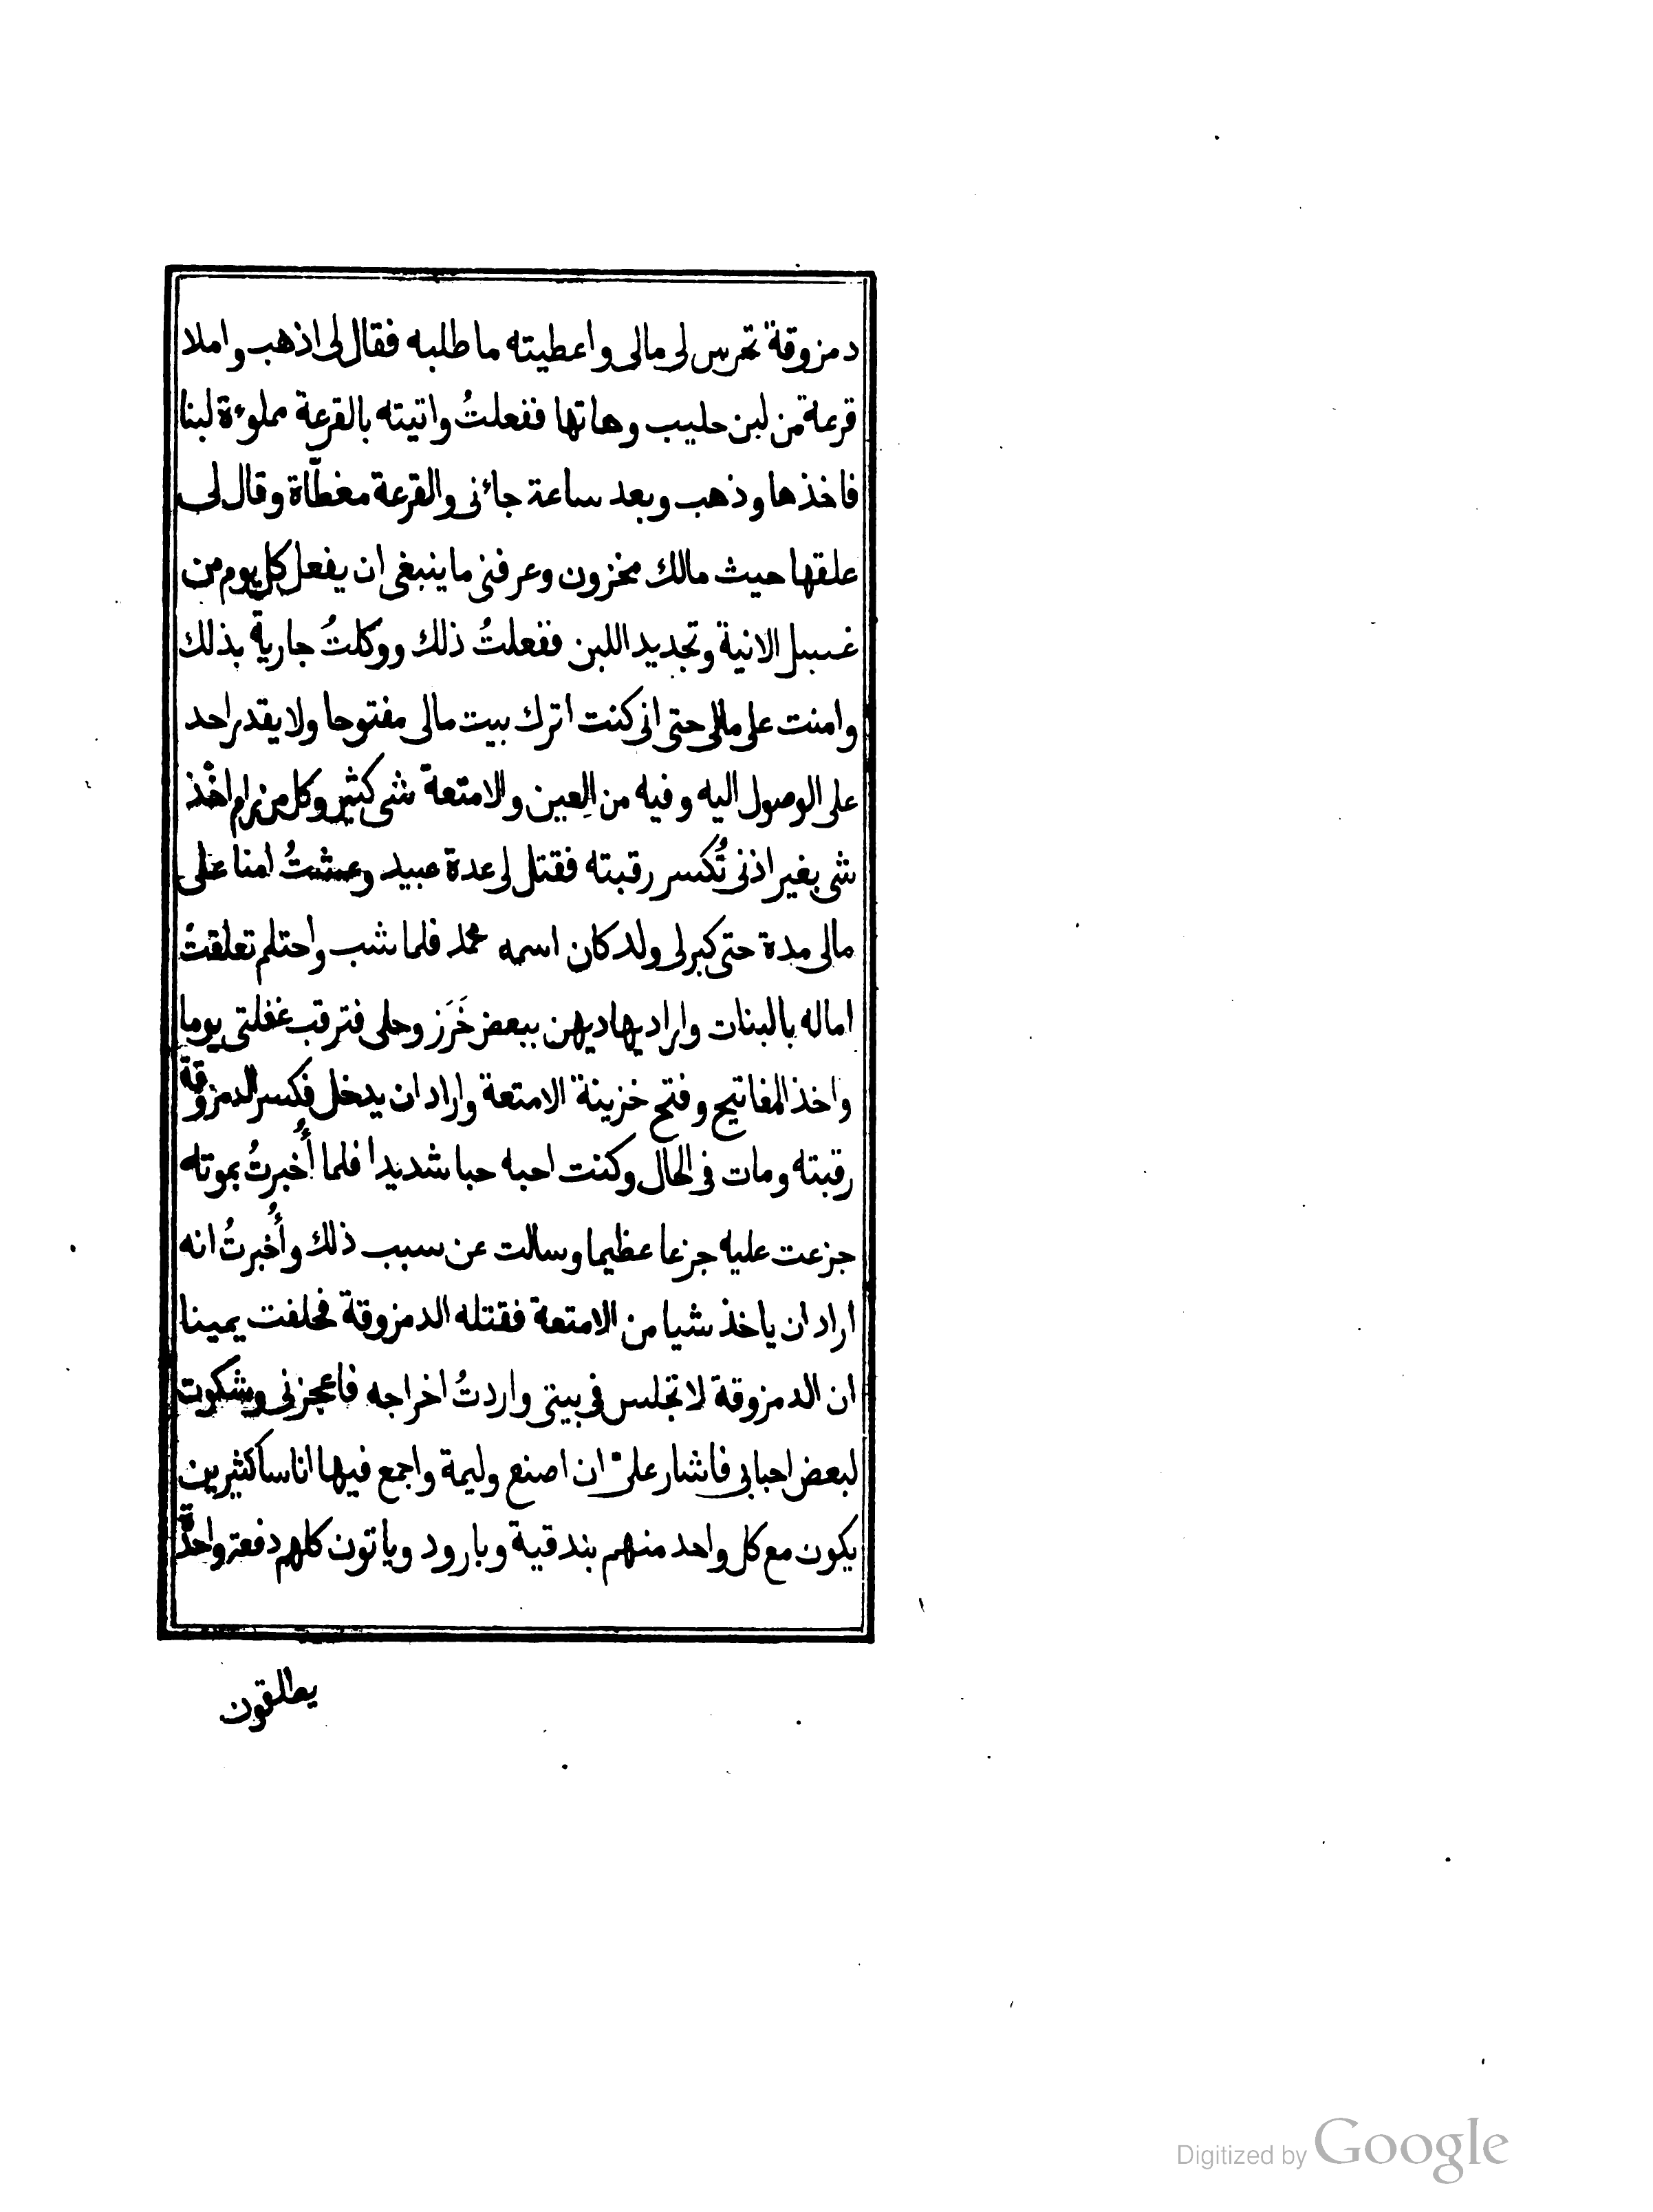 دمزوقة تحرس لى مالى واعطيته ما طلبه فقال لى اذهب واملا
قرعة من لبن حليب وهاتها ففعلتُ واتيته بالقرعة مملوءة لبنا
فاخذها وذهب وبعد ساعة جاءنى والقرعة مغطّاة وقال لى
علقها حيث مالك مخزون وعرفنى ما ينبغى ان يفعل كل يوم من
غسيل الانية وتجديد اللبن ففعلتُ ذلك ووكلتُ جارية بذلك
وامنت على مالى حتى انى كنت اترك بيت مالى مفتوحا ولا يقدر احد
على الوصول اليه وفيه من العِين والامتعة شى كثير وكل من رام اخْذ
شى بغير اذنى تُكسر رقبته فقتل لى عدة عبيد وعشتُ امنا على
مالى مدة حتى كبر لى ولد كان اسمه محمد فلما شب واحتلم تعلقتْ
اماله بالبنات واراد يهاديهن ببعض خَرَز وحلى فترقب غفلتى يوما
واخذ المفاتيح وفتح خزينة الامتعة واراد ان يدخل فكسر الدمزوقة
رقبته ومات فى الحال وكنت احبه حبا شديدا فلما أُخبرتُ بموته
جزعت عليه جزعا عظيما وسالت عن سبب ذلك وأُخبرتُ انه
اراد ان ياخذ شيا من الامتعة فقتله الدمزوقة فحلفت يمينا
ان الدمزوقة لا تجلس فى بيتى واردتُ اخراجه فاعجزنى وشكوت
لبعض احبابى فاشار علىّ ان اصنع وليمة واجمع فيها اناسا كثيرين
يكون مع كل واحد منهم بندقية وبارود وياتون كلهم دفعة واحدة
يطلقون
Digitized by Google